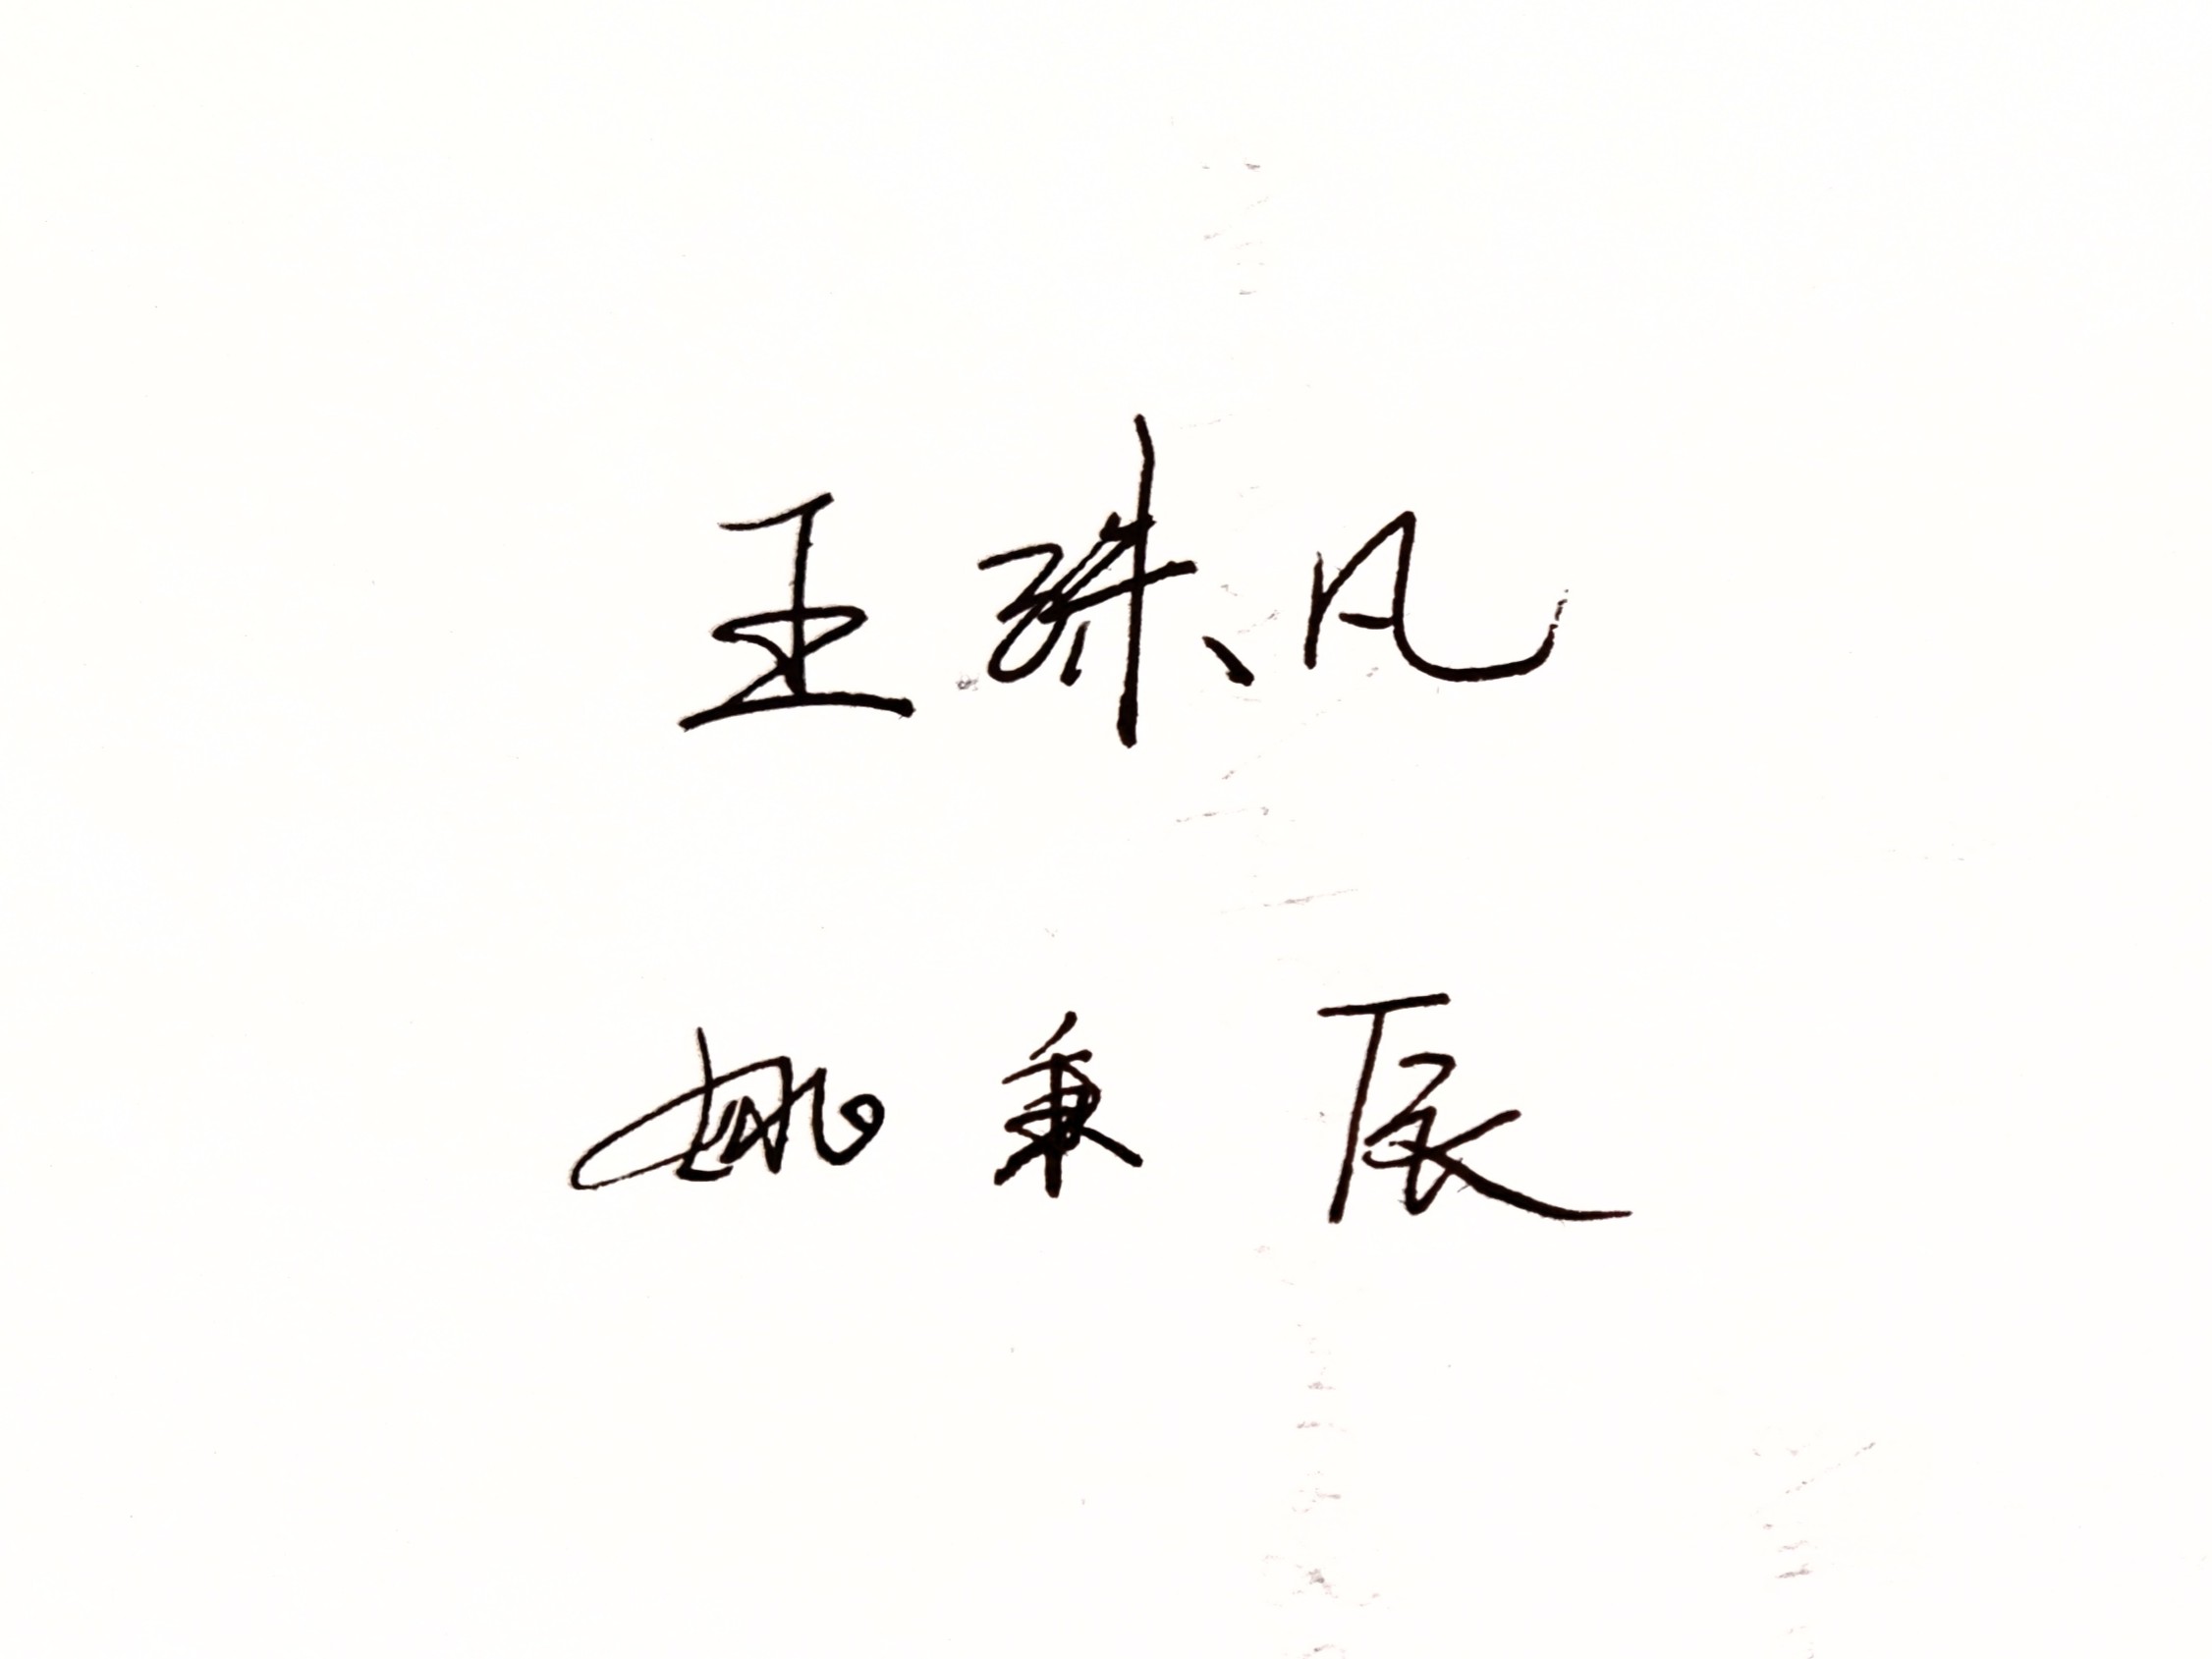 王珠凡
姚秉辰